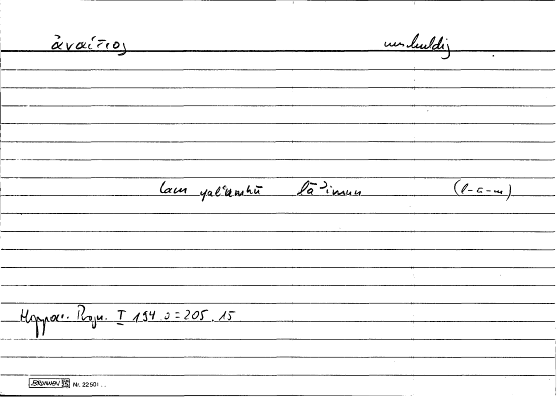 ἀναίτιος unschuldig
lam yal'amhū lā'imun (l-ʾ-m)
Hippocr. Progn. I 194.2 = 205.15
BRUNNEN Nr. 22501